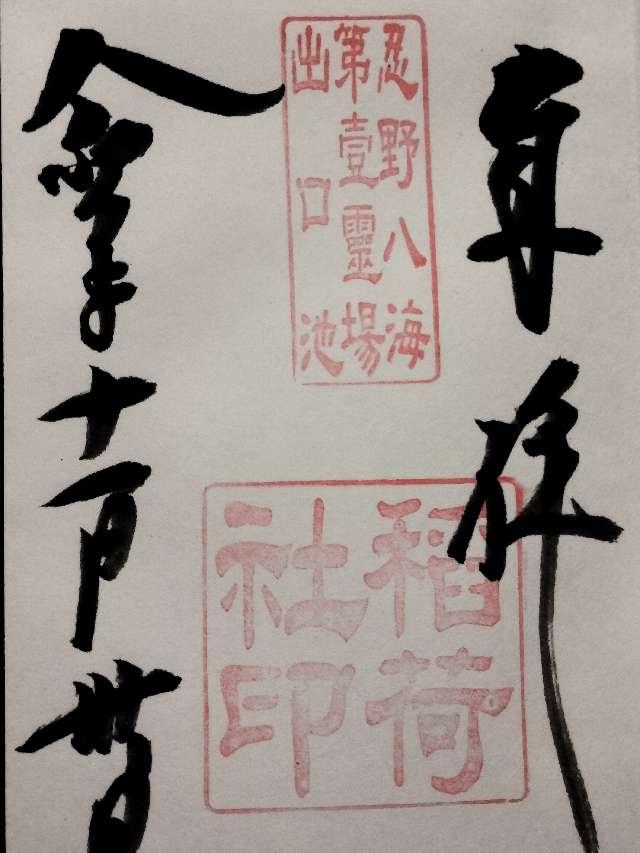 奉拝
忍野八海
第壹靈場
出口池
稲荷
社印
十一月卅日